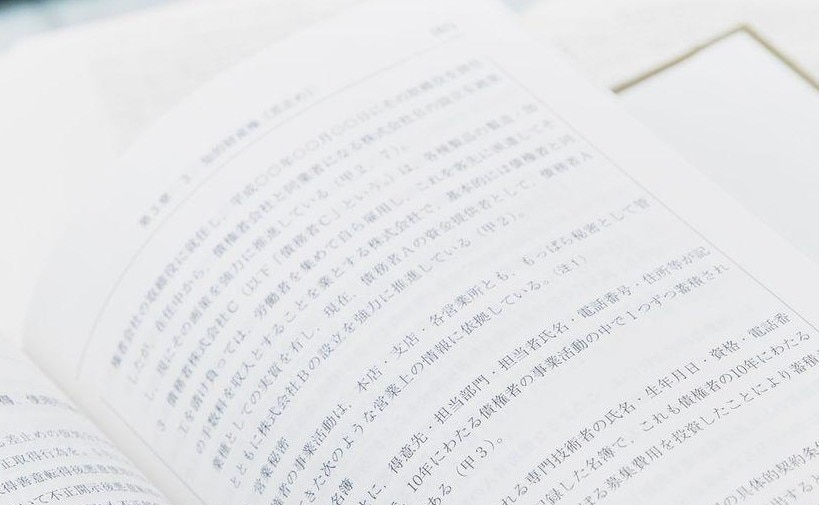 第3章 3 知的財産権(差止め)
権者会社の取締役に就任し、平成〇〇年〇〇月〇〇日にその取締役を辞任
したが、在任中から、債権者会社と同業者になる株式会社Bの設立を画策
し、現にその画策を強力に推進している(甲2、7)。
3 債務者株式会社C(以下「債務者C」という。)は、各種製品の製造・加
工を請け負っては、労働者を集めて自ら雇用し、これを客先に派遣してそ
の手数料を収入とすることを業とする株式会社で、基本的には債権者と同
業種としての実質を有し、現在、債務者Aの資金提供者として、債務者A
とともに株式会社Bの設立を強力に推進している(甲2)。
営業秘密
債権者の事業活動は、本店・支店・各営業所とも、もっぱら秘密として管
てきた次のような営業上の情報に依拠している。(注1)
名簿
とに、得意先・担当部門・担当者氏名・電話番号・住所等が記
、10年にわたる債権者の事業活動の中で1つずつ蓄積され
ある(甲3)。
れる専門技術者の氏名・生年月日・資格・電話番
記録した名簿で、これも債権者の10年にわたる
ぼる募集費用を投資したことにより蓄積
の具体的契約条
出すると
る差止めの
正取得行為を、
得善意転得後悪意
いて不正開示後悪意